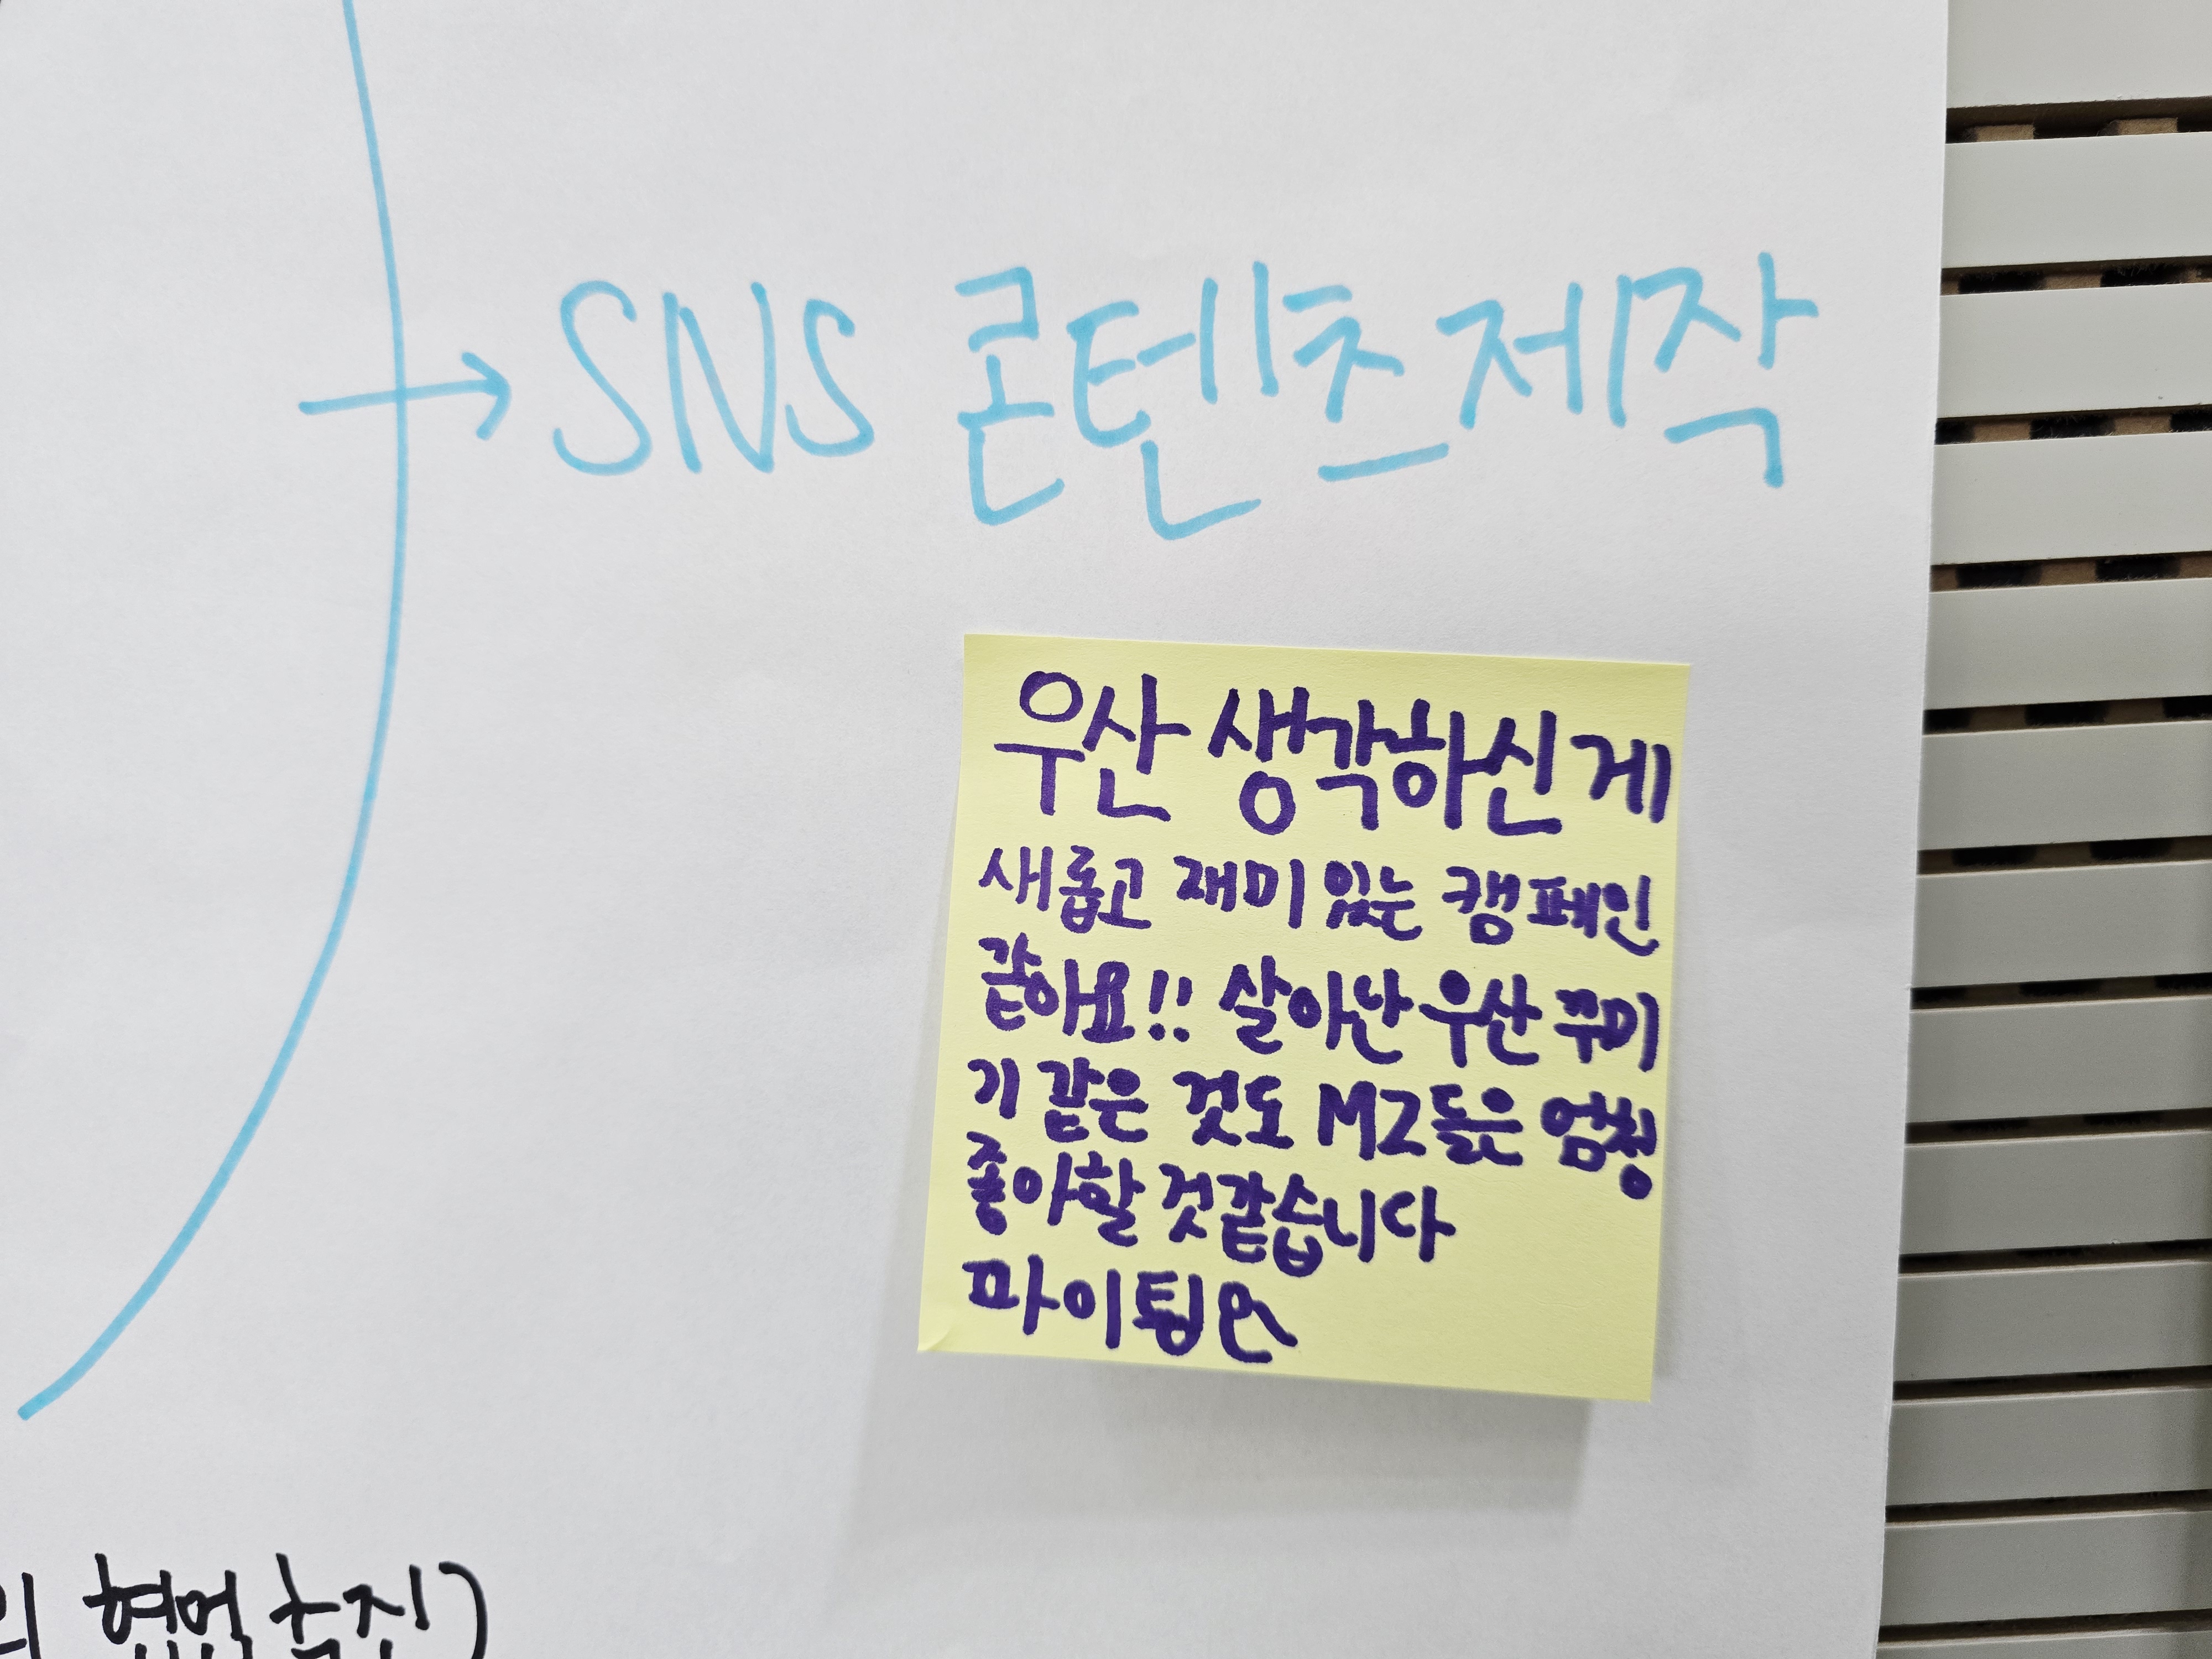 SNS 콘텐츠 제작
우산 생각하신 게
새롭고 재미 있는 캠페인
같아요!! 살아난 우산 꾸미
기 같은 것도 MZ들은 엄청
좋아할 것 같습니다
협업 추진)